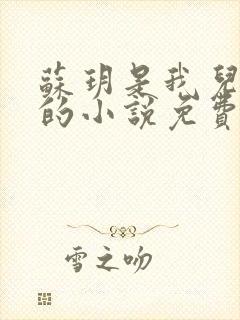 蘇玥是我兒
的小說免費
雪之吻